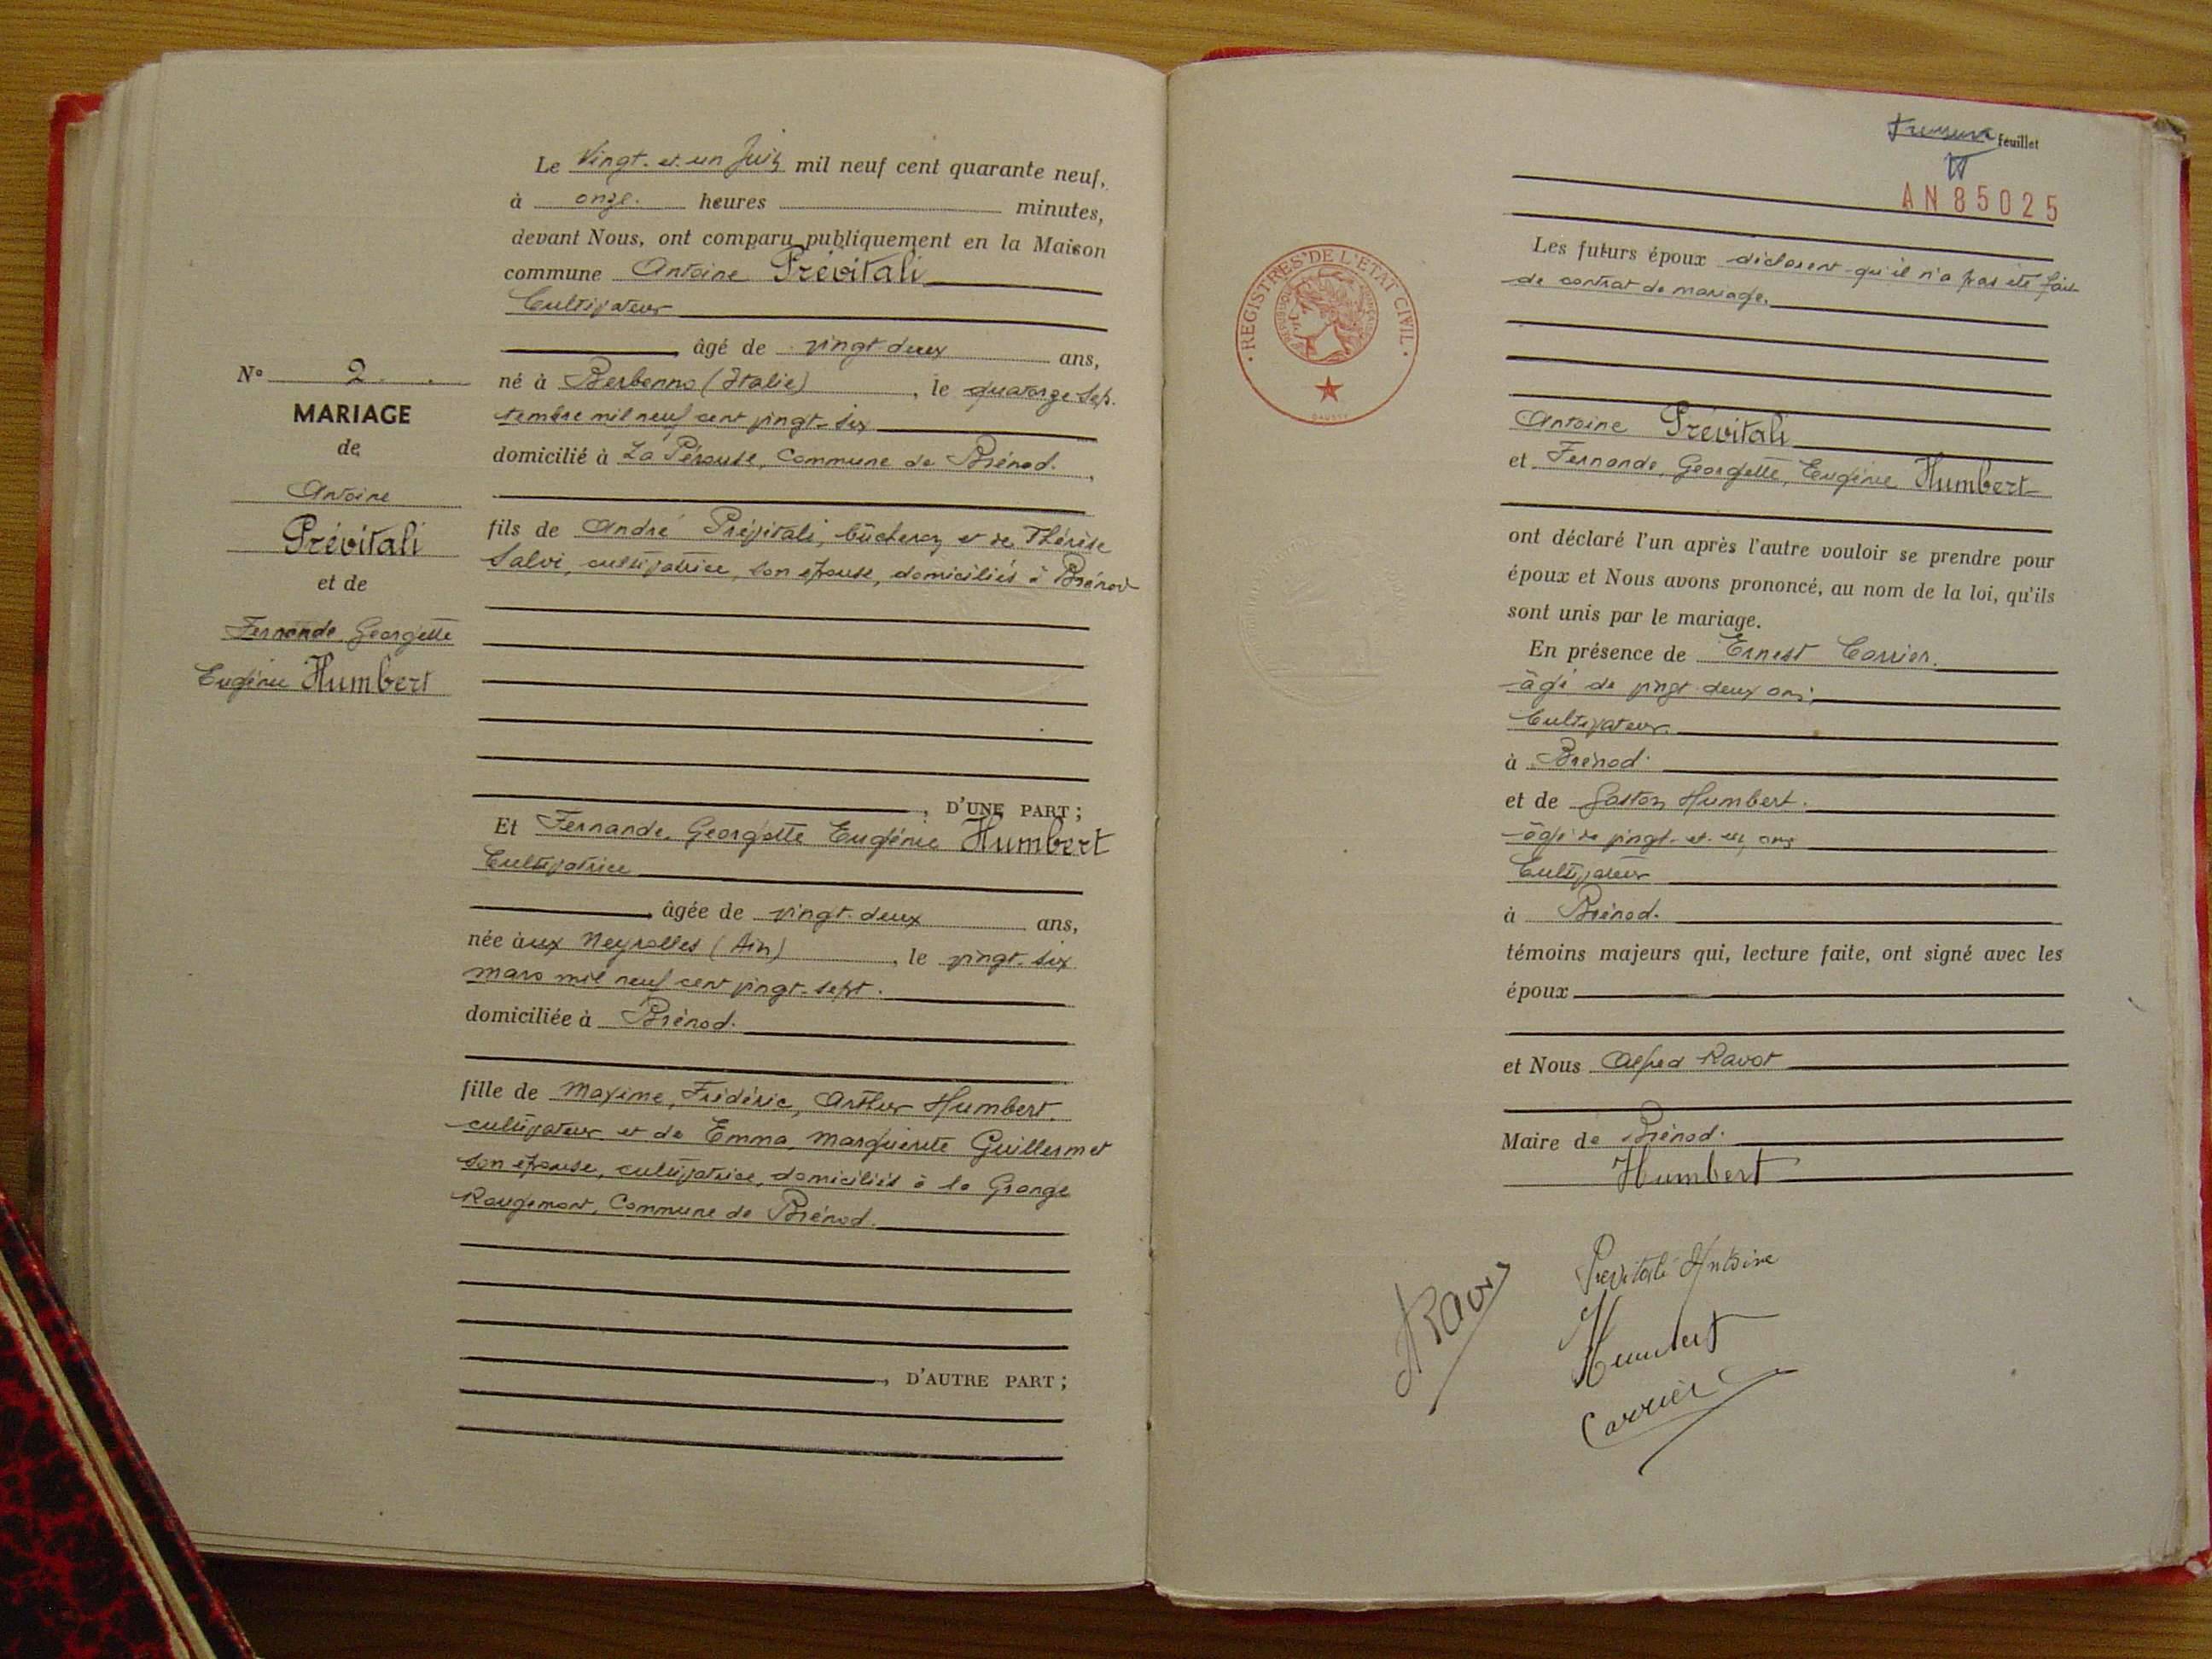 Le Vingt-et-un Juin mil neuf cent quarante neuf,
à onze heures minutes,
devant Nous, ont comparu publiquement en la Maison
commune Antoine Prévitali
Cultivateur
âgé de vingt deux ans,
né à Berbenno (Italie), le quatorze Sep-
tembre mil neuf cent vingt-six
domicilié à La Pérouse, Commune de Brénod.,
fils de André Prévitali, bûcheron et de Thérèse
Salvi, cultivatrice, son épouse, domiciliés à Brénod
, D'UNE PART ;
Et Fernande Georgette Eugénie Humbert
Cultivatrice
âgée de vingt-deux ans,
née aux Neyrolles (Ain), le vingt-six
mars mil neuf cent vingt-sept.
domiciliée à Brénod.
fille de Maxime, Frédéric, Arthur Humbert.
cultivateur et de Emma, Marguerite Guillermet
son épouse, cultivatrice, domiciliés à la Grange
Rougemont, Commune de Brénod.
, D'AUTRE PART ;
N° 2
MARIAGE
de
Antoine
Prévitali
et de
Fernande Georgette
Eugénie Humbert
feuillet
AN85025
Les futurs époux déclarent qu'il n'a pas été fait
de contrat de mariage.
REGISTRES DE L'ÉTAT CIVIL
Antoine Prévitali
et Fernande, Georgette, Eugénie Humbert
ont déclaré l'un après l'autre vouloir se prendre pour
époux et Nous avons prononcé, au nom de la loi, qu'ils
sont unis par le mariage.
En présence de Ernest Carrier.
âgé de vingt-deux ans,
Cultivateur.
à Brénod.
et de Gaston Humbert.
âgé de vingt-et-un ans
Cultivateur
à Brénod.
témoins majeurs qui, lecture faite, ont signé avec les
époux
et Nous Alfred Ravot
Maire de Brénod.
Humbert
Previtali Antoine
ARavot
Humbert
Carrier